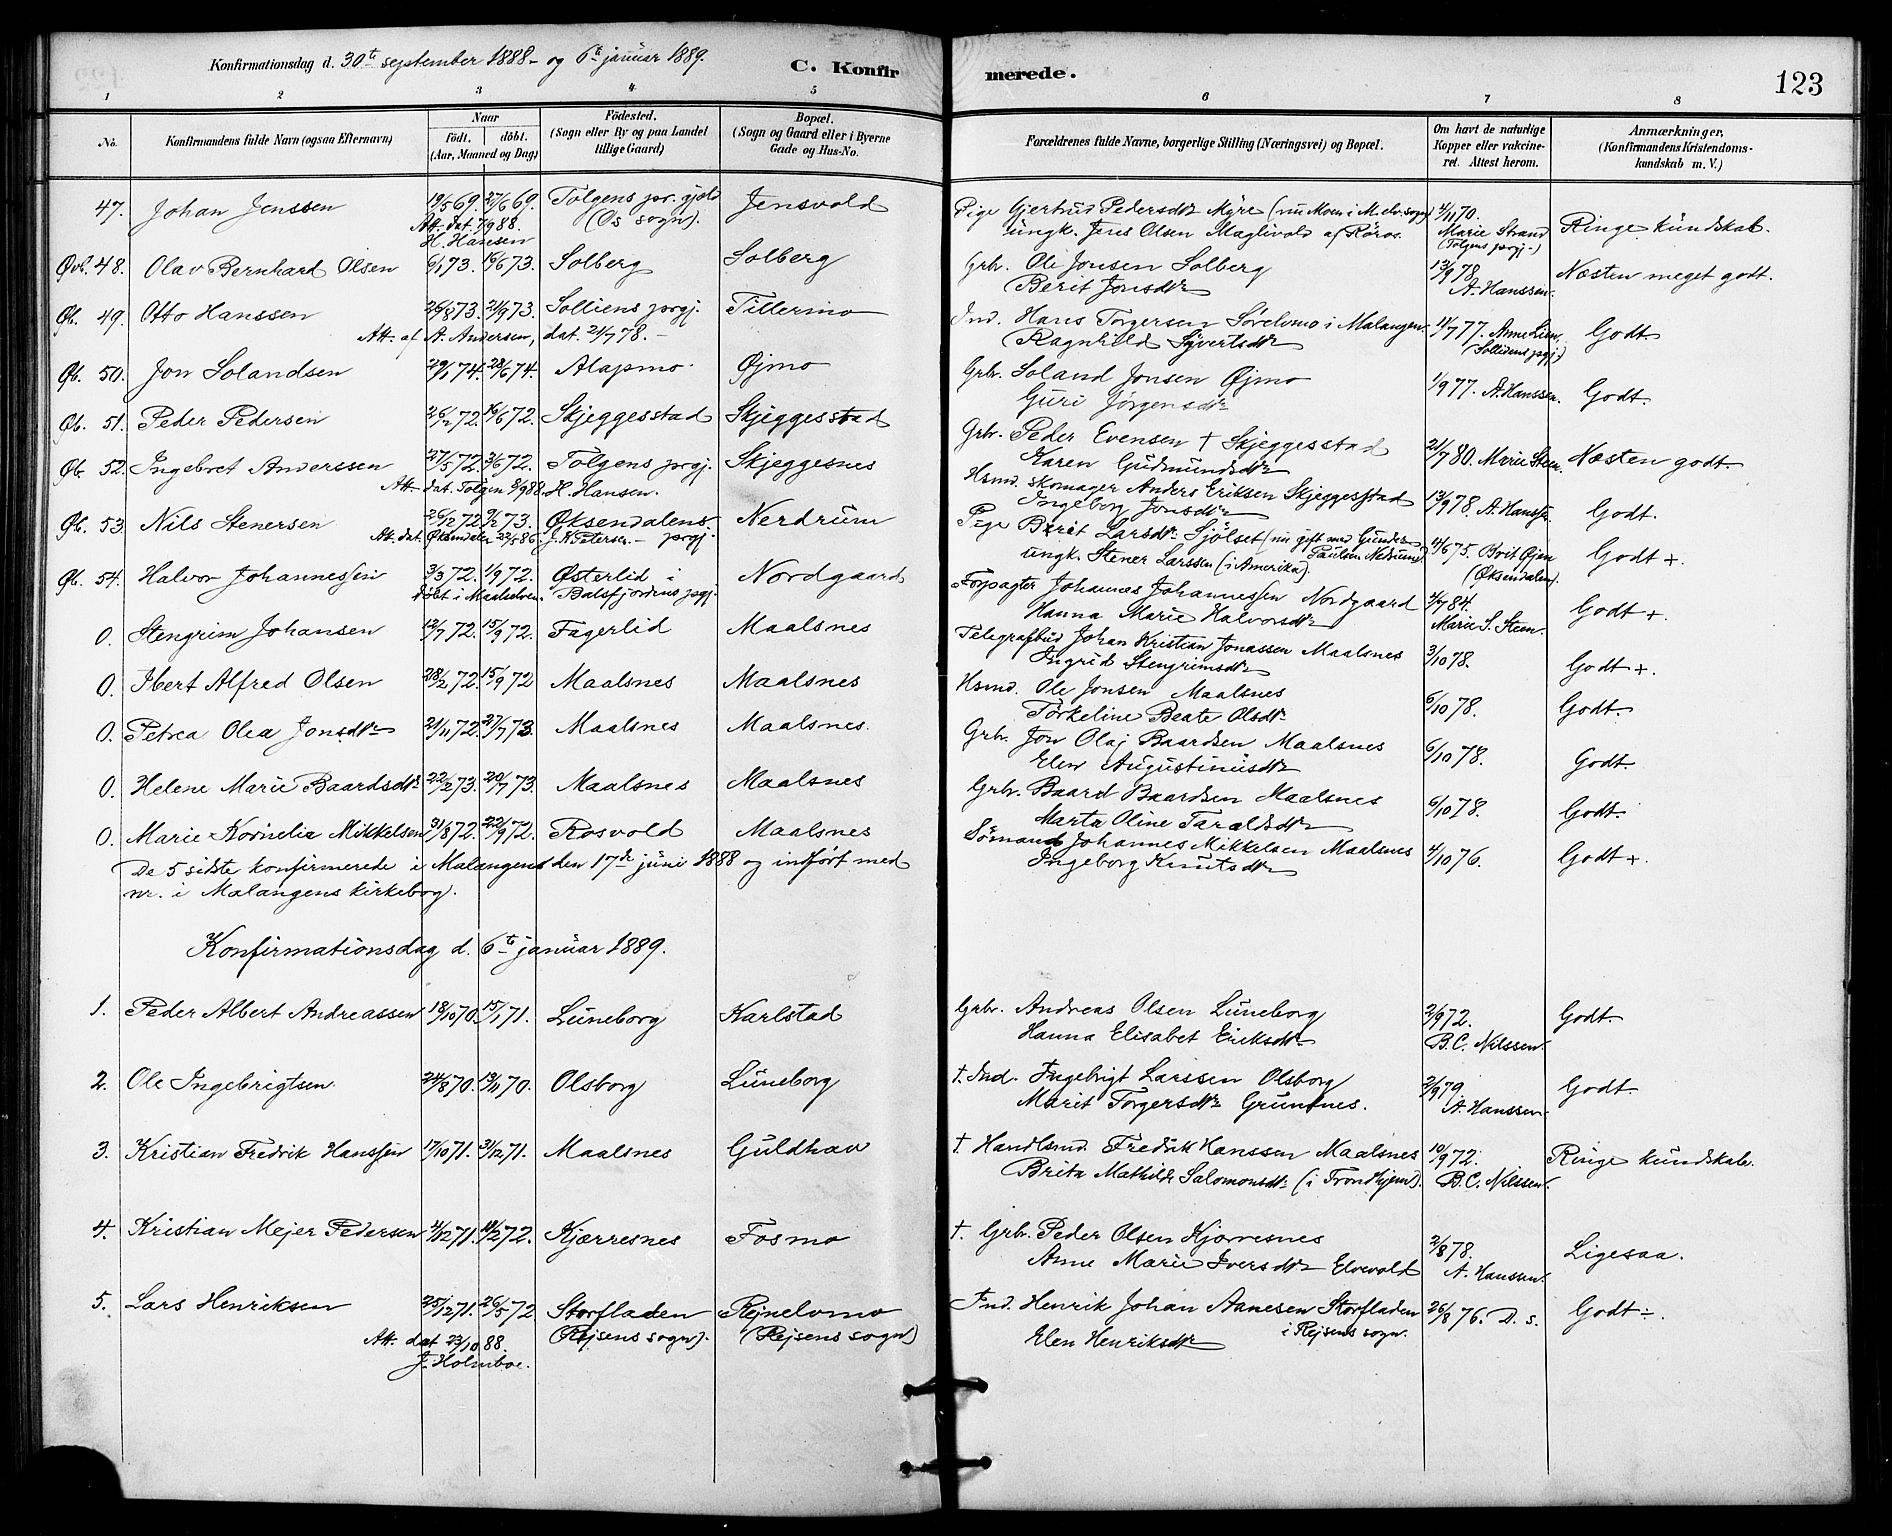 Konfirmationsdag d. 30te september 1888 - og 6te januar 1889.
C. Konfirmerede.
123
1 2 3 4 5 6 7 8
No. Konfirmandens fulde Navn (ogsaa Efternavn) Naar födt. döbt. (Aar, Maaned og Dag) Födested. (Sogn eller By og paa Landet tillige Gaard) Bopæl. (Sogn og Gaard eller i Byerne Gade og Hus-No.) Forældrenes fulde Navne, borgerlige Stilling (Næringsvei) og Bopæl. Om havt de naturlige Kopper eller vakcineret. Attest herom. Anmærkninger, (Konfirmandens Kristendomskundskab m. V.)
47. Johan Jenssen 19/5 69. 27/6 69. Tolgens pr.gjeld (Os sogn). Jensvold Pige Gjertrud Pedersdtr Myre (nu Moen i M.elv. sogn) 4/11 70. Ringe kundskab.
Att. dat. 7/9 88. H. Hansen ungk. Jens Olsen Maglivold af Röros. Marie Strand (Tolgens prgj.)
Øvb. 48. Olav Bernhard Olsen 6/1 73. 16/6 73. Solberg Solberg Grbr. Ole Jonsen Solberg 13/9 78. Næsten meget godt.
Berit Jonsdtr A. Hanssen.
Øb. 49. Otto Hanssen 26/8 73. 21/9 73. Solliens prgj. Tillermo Ind. Hans Torgersen Sørelvmo i Malangen 11/7 77. Anne Lien, Godt.
Att. af A. Andersen, dat. 21/7 78. - Ragnhild Syvertsdtr (Sollidens prgj.)
Øb. 50. Jon Solandsen 29/1 74. 28/6 74. Alapmo Øjmo Grbr. Soland Jonsen Øjmo 1/9 77. A. Hanssen. Godt.
Guri Jørgensdtr
Øb. 51. Peder Pedersen 26/2 72. 16/6 72. Skjeggesstad Skjeggesstad Grbr. Peder Evensen + Skjeggesstad 21/7 80. Marie Steen. Næsten godt.
Karen Gudmundsdtr
Øb. 52. Ingebret Anderssen 27/5 72. 3/6 72. Tolgens prgj. Skjeggesnes Hsmd. skomager Anders Eriksen Skjeggesstad 13/9 78. A. Hanssen Godt.
Att. dat. Tolgen 8/9 88. H. Hansen. Ingeborg Jonsdtr
Øb. 53. Nils Stenersen 26/12 72. 9/2 73. Øksendalens prgj. Nerdrum Pige Berit Larsdtr Sjölset (nu gift med Gunder Paulsen Nedrum) 11/6 75. Brit Øjen Godt +
Att. dat. Øksendalen 22/5 86. J. N. Petersen. - ungk. Stener Larssen (i Amerika). (Øksendalen).
Øb. 54. Halvor Johannessen 3/3 72. 1/9 72. Østerlid i Nordgaard Forpagter Johannes Johannessen Nordgaard 4/7 84. Godt +.
döbt i Maalselven. Balsfjordens prgj. Hanna Marie Halvorsdtr Marie S. Steen.
0. Stengrim Johansen 12/7 72. 15/9 72. Fagerlid Maalsnes Telegrafbud Johan Kristian Jonassen Maalsnes 3/10 78. Godt +.
Ingrid Stengrimsdtr
0. Ibert Alfred Olsen 28/2 72. 15/9 72 Maalsnes Maalsnes Hsmd. Ole Jonsen Maalsnes 6/10 78. Godt.
Torkeline Beate Olsdtr
0. Petrea Olea Jonsdtr 21/11 72. 27/7 73. Maalsnes Maalsnes. Grbr. Jon Olaj Baardsen Maalsnes 6/10 78. Godt.
Elen Augustinusdtr
0. Helene Marie Baardsdtr 22/2 73. 20/7 73. Maalsnes Maalsnes Grbr. Baard Baardsen Maalsnes 6/10 78. Godt.
Marta Oline Taraldsdtr
0. Marie Kornelia Mikkelsen 31/8 72. 22/9 72. Rosvold Maalsnes Sømand Johannes Mikkelsen Maalsnes 4/10 76. Godt +.
Ingeborg Knutsdtr
De 5 sidste konfirmerede i Malangen den 17de juni 1888 og indført med
nr. i Malangens kirkebog.
Konfirmationsdag d. 6te januar 1889.
1. Peder Albert Andreassen 18/10 70. 15/1 71. Luneborg Karlstad Grbr. Andreas Olsen Luneborg 2/9 72. Godt.
Hanna Elisabet Eriksdtr B.C. Nilssen.
2. Ole Ingebrigtsen 24/8 70. 13/11 70. Olsborg Luneborg +. Ind. Ingebrigt Larssen Olsborg 2/9 79. Godt.
Marit Torgersdtr Gruntnes. A. Hanssen.
3. Kristian Fredrik Hanssen 17/10 71. 31/12 71. Maalsnes Guldhav + Handlsmd. Fredrik Hanssen Maalsnes 10/9 72. Ringe kundskab.
Brita Mathilde Salomonsdtr (i Trondhjem). B.C. Nilssen.
4. Kristian Mejer Pedersen 4/12 71. 11/2 72. Kjærresnes Fosmo +. Grbr. Peder Olsen Kjærresnes 2/8 78. Ligesaa.
Anne Marie Iversdtr Elvevold A. Hanssen.
5. Lars Henriksen 25/12 71. 26/5 72 Storfladen Rejnelvmo Ind. Henrik Johan Aanesen Storfladen 26/8 76. D. s. Godt ÷.
(Rejsens sogn). (Rejsens sogn) Elen Henriksdtr i Rejsens sogn.
Att. dat 23/10 88.
J. Holmboe.